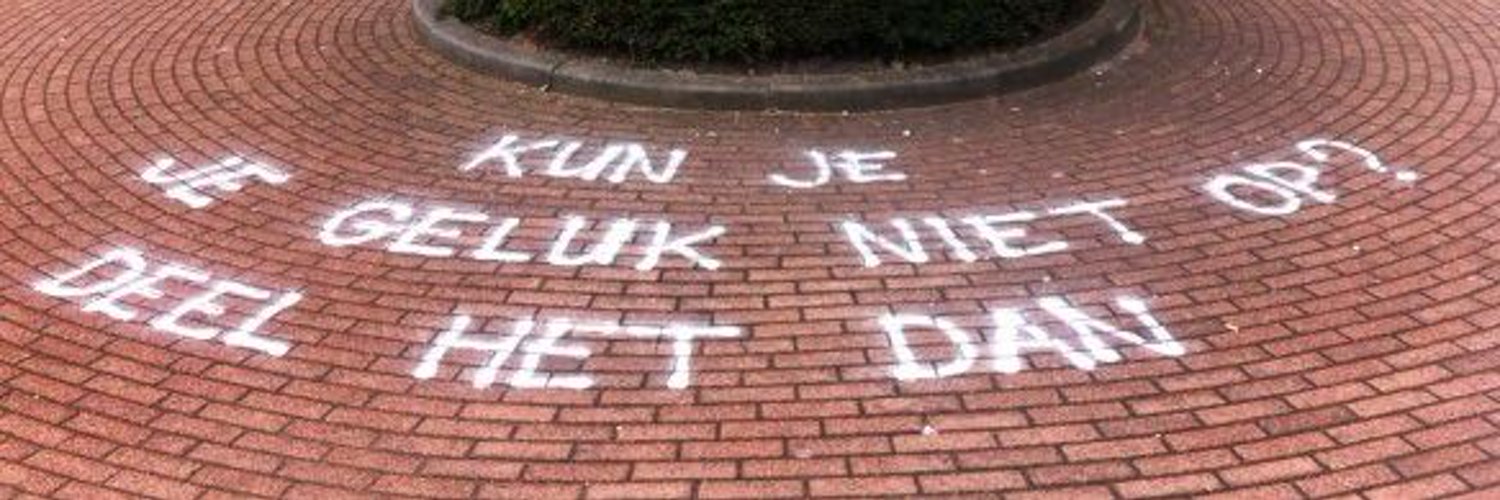 KUN JE
JE GELUK NIET OP?
DEEL HET DAN